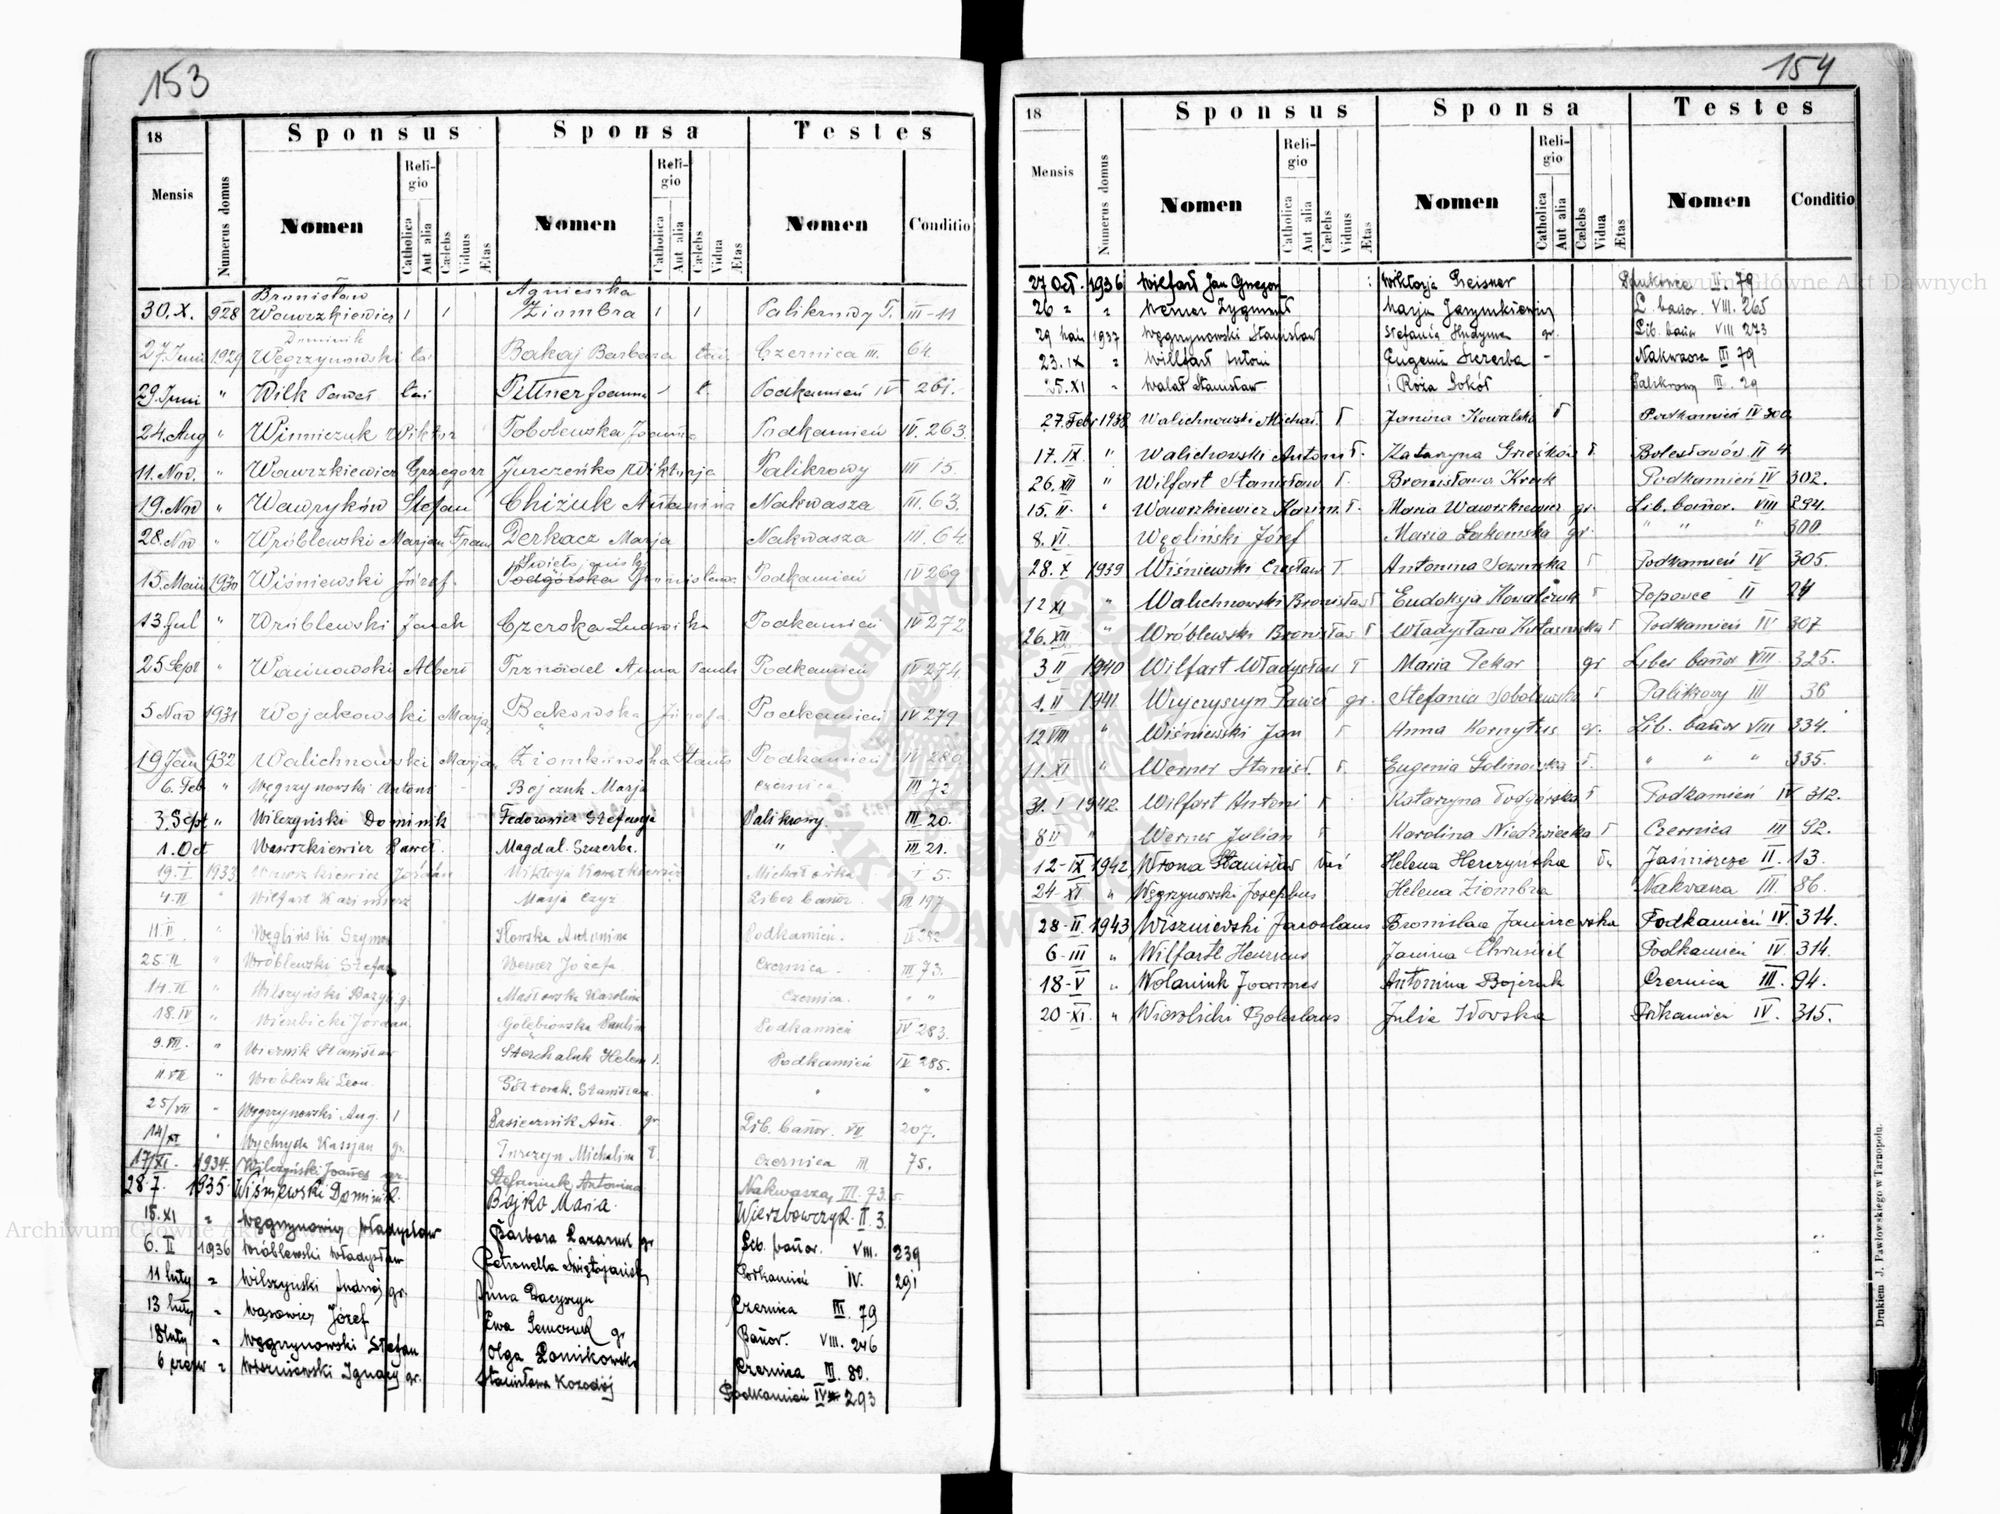 153
18 Sponsus Sponsa Testes
Mensis Numerus domus Nomen Religio Catholica Aut alia Cælebs Viduus Ætas Nomen Religio Catholica Aut alia Cælebs Vidua Ætas Nomen Conditio
Bronisław Agnieszka
30.X. 928 Wawrzkiewicz 1 1 Ziombra 1 1 Palikrowy T. III-11
Dominik
27.Juni 1929 Węgrzynowski Bakaj Barbara Czernica III. 64.
29.Juni " Wilk Paweł Pittner Joanna Podkamień IV 261.
24.Aug " Winniczuk Wiktor Tobolewska Joanna Podkamień IV. 263.
11.Nov. " Wawrzkiewicz Grzegorz Jurczeńko Wiktorja Palikrowy III 15.
19.Nov " Wawryków Stefan Chiżuk Antonina Nakwasza III. 63.
28.Nov " Wróblewski Marjan Franc Derkacz Marja Nakwasza III. 64.
15.Maii 1930 Wiśniewski Józef. Podgórska Podkamień IV 269
13.Jul " Wróblewski Jacek Czerska Ludwika Podkamień IV 272
25 Sept " Walinowski Albert Trznadel Anna Podkamień IV 274.
5 Nov 1931 Wojakowski Marja Bakowska Józefa. Podkamień IV 279
19 Jan 932 Walichnowski Marjan Ziomkowska Stanis Podkamień IV 280
6. Feb " Węgrzynowski Antoni Bojczuk Marja Czernica III 72
3.Sept " Wilczyński Dominik Fedorowicz Stefanja Palikrowy. III 20.
1. Oct Wawrzkiewicz Paweł. Magdal. Szczerba. " III 21.
19.I. 1933 Wawrzkiewicz Jordan I 5.
4.II " Wilfart Kazimierz Marja Czyż Liber bańor. VII 197
11.II. " Węgliński Szymon Iłowska Antonina Podkamień. IV 282
25 II " Wróblewski Stefan Werner Józefa Czernica. III 73.
14.II " Wilszyński Bazyli gr. Masłowska Karolina Czernica. " "
18.IV " Wierzbicki Jordan. Gołębiowska Paulina Podkamień IV 283.
9.VII. " Wiernik Stanisław Helena Podkamień IV 285.
" Wróblewski Leon. Półtorak. Stanisława. " "
25/VII " Węgrzynowski Aug. 1 Pasiecznik Ann. gr. Lib. bańor. VII 207.
14/XI " Wychryda Kasjan gr. Turczyn Michalina Czernica III 75.
17/XI. 1934. Wilczyński Joannes Stefaniuk Antonina Nakwasza, III. 73.
28.I. 1935 Wiśniewski Dominik. Bojko Maria. Wierzbowczyk. II. 3.
15.XI " Władysław Barbara Łazaruk gr Lib. bańor. VIII. 239
6. II 1936 Wróblewski Władysław Petronella Świętojańska Podkamień IV. 291
11 luty " Wilszyński Andrzej gr. Anna Daczyszyn Czernica III. 79
13 luty " Wąsowicz Józef Ewa gr Bańor. VIII. 246
18 luty " Węgrzynowski Stefan Olga Łomikowska Czernica III. 80.
6 czerw " Wiszniewski Ignacy gr. Stanisława Kozodój Podkamień IV 293
154
18 Sponsus Sponsa Testes
Mensis Numerus domus Nomen Religio Catholica Aut alia Cælebs Viduus Ætas Nomen Religio Catholica Aut alia Cælebs Vidua Ætas Nomen Conditio
27 Oct. 1936 Wilfart Jan Gregor Wiktorja Preisner II. 79
26 " " Werner Zygmunt Marja L. bańor. VIII. 265
29 1937 Węgrzynowski Stanisław Stefania Hudyma gr. Lib. bańor VIII 273
23.IX " Willfart Antoni Eugenia Szczerba - Nakwasza III 79
25.XI " Walat Stanisław i Róża Sokół Palikrowy III. 29
27.Febr 1938 Walichnowski Michał. Janina Kowalska Podkamień IV 300
17.IX " Walichowski Antoni Katarzyna Bolesławów. II 4
26.XII " Wilfart Stanisław Bronisława Kruk Podkamień IV 302.
15.II. " Wawrzkiewicz Kazim. Maria Wawrzkiewicz gr. Lib. bańor. VIII 294.
8.VI Węgliński Józef Maria Łakomska gr. " " " 300
28.X 1939 Wiśniewski Czesław Antonina Podkamień IV 305.
12 XI " Walichnowski Bronisław Eudoksja Kowalczuk Popowce II 24
26.XII " Wróblewski Bronisław Władysława Podkamień IV 307
3 II 1940 Wilfart Władysław Maria Pekar gr Liber bańor VIII. 325.
1.II 1941 Paweł gr. Stefania Sobolewska Palikrowy III 36
12 VIII " Wiśniewski Jan Anna Kornytus gr. Lib. bańor VIII 334.
11.XI " Werner Stanisł. Eugenia Golinowska " " " 335.
31.I 1942 Wilfart Antoni Katarzyna Podgórska Podkamień IV 312.
8 II " Werner Julian Karolina Niedźwiecka Czernica III 92.
12-IX 1942 Wrona Stanisław Helena Herczyńska Jaśniszcze II. 13.
24-XI " Węgrzynowski Josephus Helena Ziombra Nakwasza III. 86.
28-II 1943 Wiszniewski Jaroslaus Bronislaa Janiszewska Podkamień IV. 314.
6-III " Wilfartt Henricus Janina Chruściel Podkamień IV. 314.
18-V " Wolaniuk Joannes Antonina Bojczuk Czernica III. 94.
20-XI. " Boleslaus Julia Iłowska Podkamień IV. 315.
Drukiem J. Pawłowskiego w Tarnopolu.
Archiwum Główne Akt Dawnych
Archiwum Główne Akt Dawnych
ARCHIWUM GŁÓWNE AKT DAWNYCH